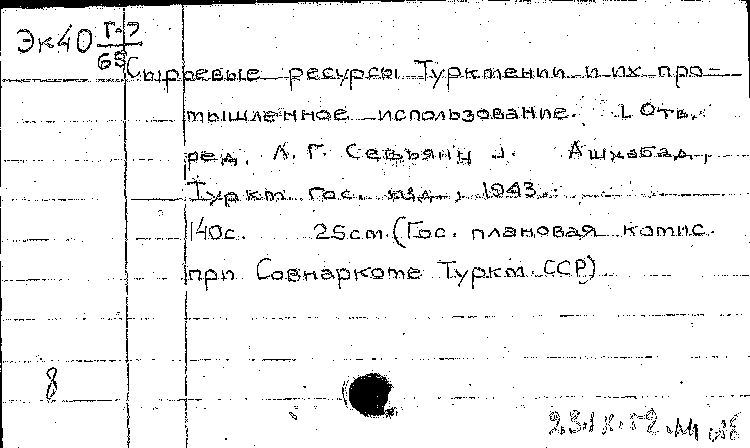 Эк40 Г-7
65
Сырьевые ресурсы Туркмении и их про-
мышленное использование. [Отв.
ред. А. Г. Севрьянц]. Ашхабад,
Туркм. гос. изд., 1943.
140с. 25см. (Гос. плановая комис.
при Совнаркоме Туркм. ССР)
8